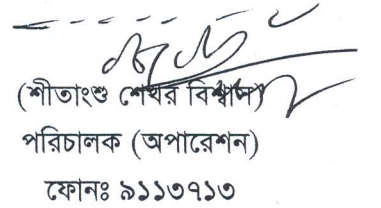 (শীতাংশু শেখর বিশ্বাস)
পরিচালক (অপারেশন)
ফোনঃ ৯১১৩৭১৩